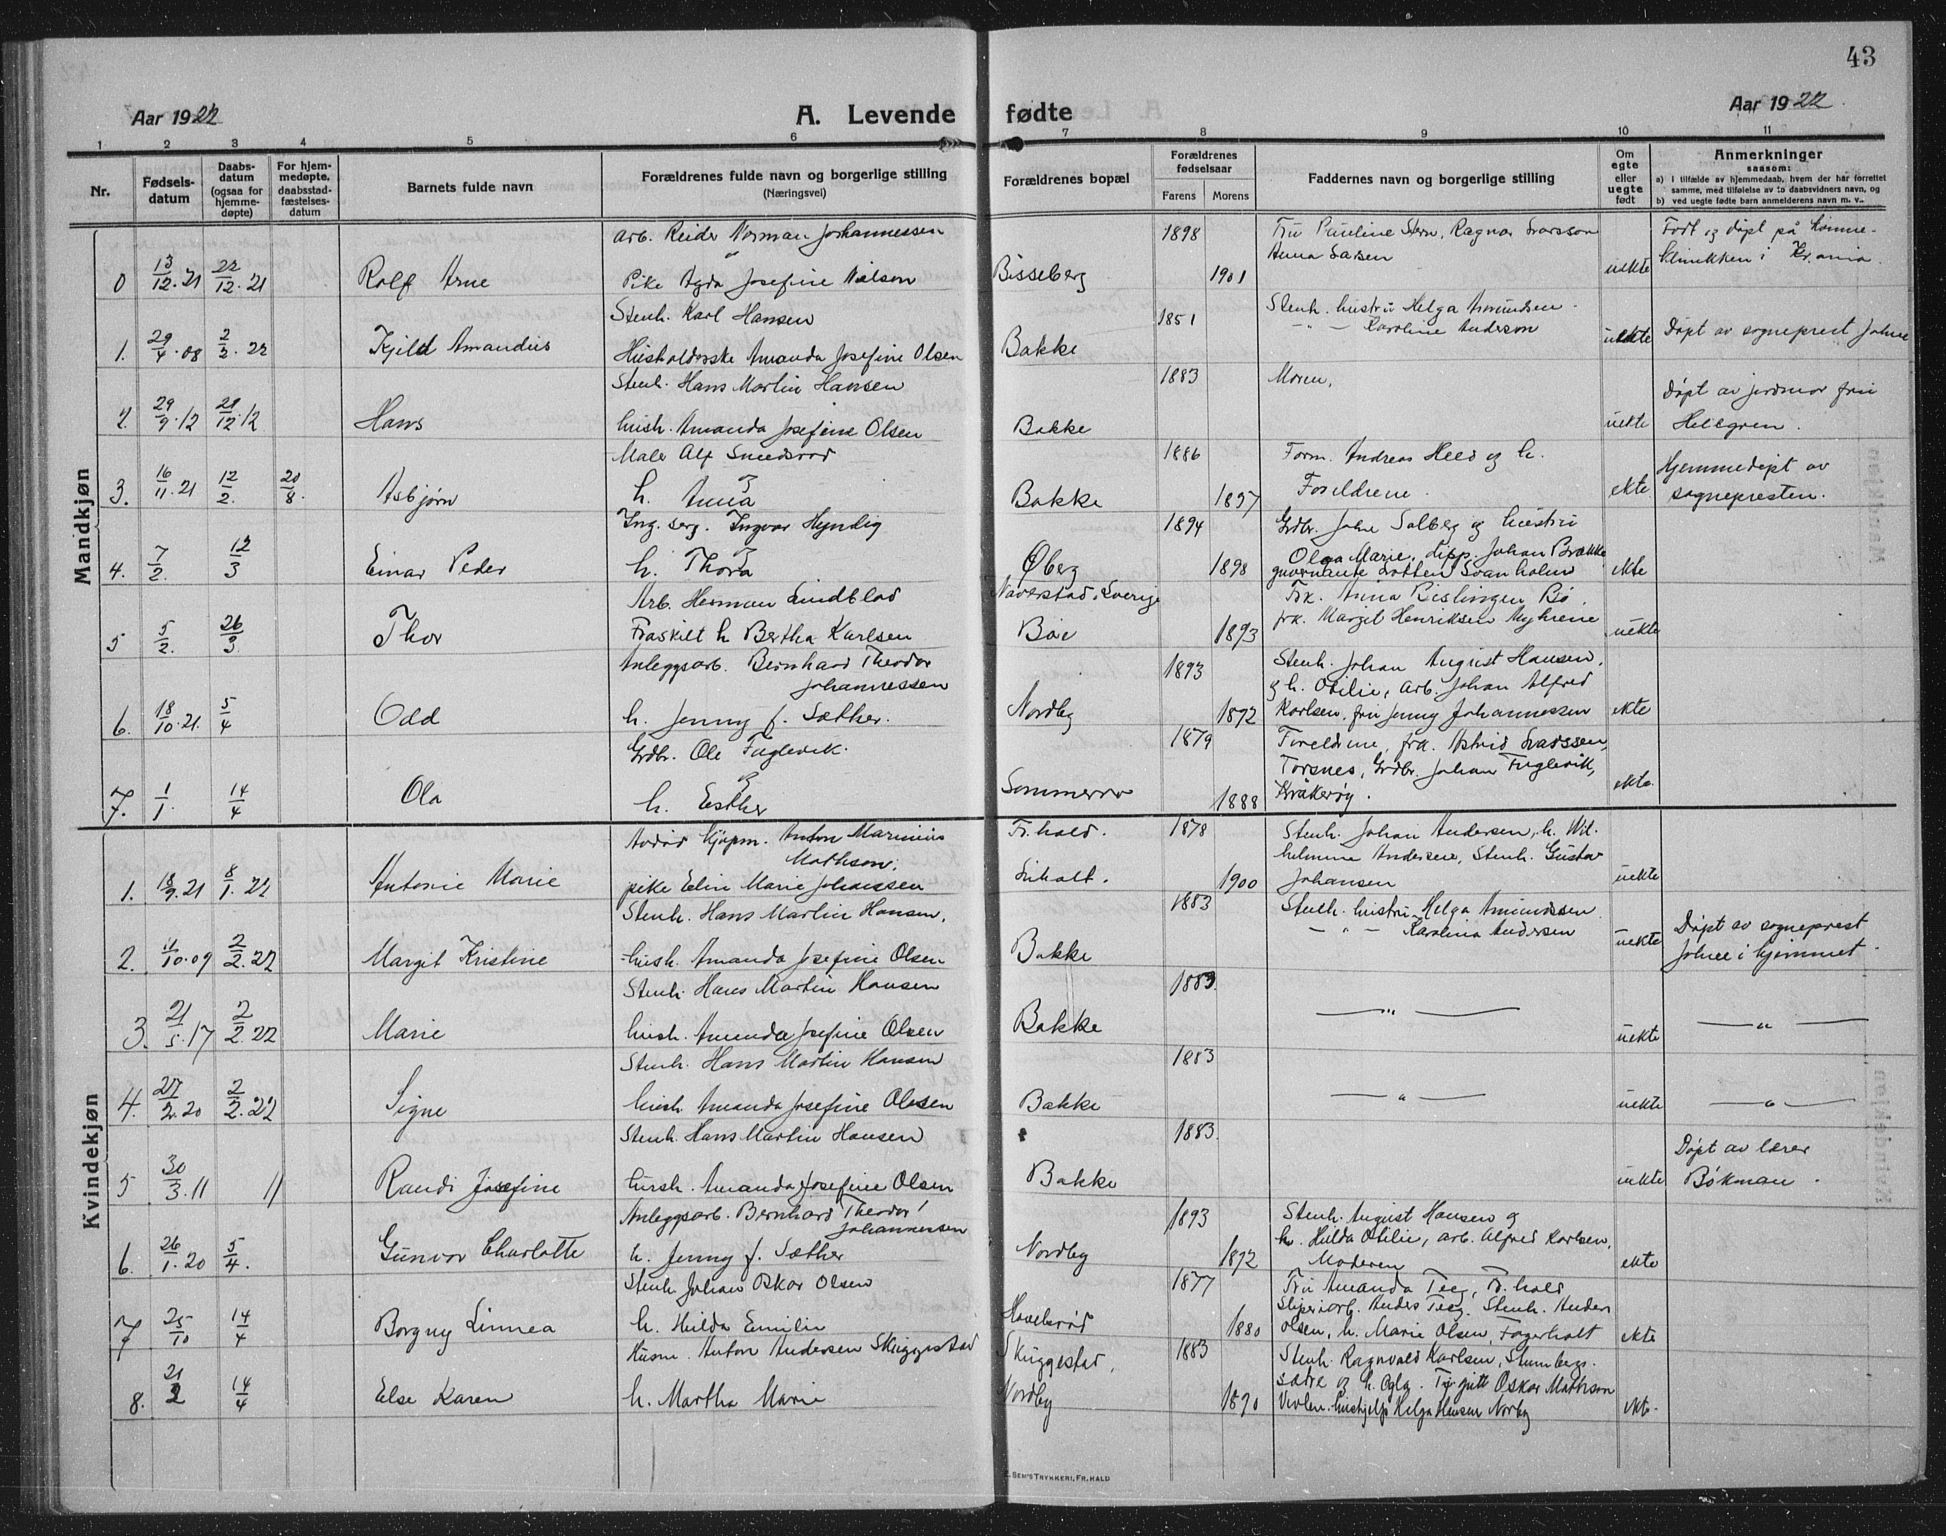 43
Aar 1922
A. Levende fødte
Aar 1922.
1 2 3 4 5 6 7 8 9 10 11
Nr.
Fødsels-
datum
Daabs-
datum
(ogsaa for
hjemme-
døpte)
For hjem-
medøpte,
daabsstad-
fæstelses-
datum
Barnets fulde navn
Forældrenes fulde navn og borgerlige stilling
(Næringsvei)
Forældrenes bopæl
Forældrenes
fødselsaar
Farens Morens
Faddernes navn og borgerlige stilling
Om
egte
eller
uegte
født
Anmerkninger
saasom:
a) i tilfælde av hjemmedaab, hvem der har forrettet
samme, med tilføielse av to daabsvidners navn, og
b) ved uegte fødte barn anmelderens navn m. v..
Mandkjøn
Arb. Reider Norman Johannessen 1898 Fru Pauline Stern, Ragnar Svarsson Født og døpt på Kvinne-
0 13/12.21 22/12.21 Rolf Arne Pike Agda Josefine Nielson Bisseberg 1901 Anna Larsen uekte klinikken i Kr.ania.
Stenh. Karl Hansen 1851 Stenh. hustru Helga Amundsen
1. 29/4.08 2/2.22 Kjeld Amandus Husholderske Amanda Josefine Olsen Bakke — " — Karoline Andersen uekte Døpt av sogneprest Johne
Stenh. Hans Martin Hansen 1883 Moren,
2. 29/9.12 29/12.12 Hans hush. Amanda Josefine Olsen Bakke uekte Døpt av jordmor fru
Hellgren.
Maler Alf Smedsrød 1886 Form. Andreas Heed og h.
3. 16/11.21 12/2. 20/8. Asbjørn h. Anna Bakke 1897 Foreldrene. ekte Hjemmedøpt av
sognepresten.
Ing. serg. Ingvar Hyndig 1894 Grdbr. Johe Solberg og hustru
4. 7/2. 12/3 Einar Peder h. Thora Øberg 1898 Olga Marie, Johan Brække
guvernante Lotten Svanholm ekte
Arb. Herman Lindblad Naverstad, Sverige Frk. Anna Bislingen Bø.
5 5/2. 26/3. Thor Fraskilt h Bertha Karlsen Bøe 1893 frk. Margit Henriksen Myhrene uekte
Anleggsarb. Bernhard Theodor
Johannessen 1893 Stenh. Johan August Hansen,
og h. Otilie, arb. Johan Alfred
6. 18/10.21. 5/4 Odd h. Jenny f. Sæther. Nordby 1892 Karlsen, fru Jenny Johannessen ekte
Grdbr. Ole Fuglevik. 1879 Foreldrene, frk. Astrid
7. 1/1. 14/4 Ola h. Esther Sommerro 1888 Torsnes, Grdbr. Johan Fuglevik,
Kråkerøy. ekte
Kvindekjøn
Kjøpm. Anton Marinius
Mathson, Fr.hald. 1878 Stenh. Johan Andersen, h. Wil-
helmine Andersen, Stenh. Gustav
1. 18/9.21 8/1.22 Antonie Marie pike Elin Marie Johansen 1900 Johansen uekte
Stenh. Hans Martin Hansen. 1883 Stenh. hustru Helga Amundsen
2. 11/10.09 2/2.22 Margit Kristine hush. Amanda Josefine Olsen Bakke — " — Karolina Andersen uekte Døpt av sogneprest
Johne i hjemmet.
Stenh. Hans Martin Hansen 1883
3. 21/5.17 2/2.22 Marie hush. Amanda Josefine Olsen Bakke — " — uekte — " —
Stenh. Hans Martin Hansen 1883
4. 27/2.20 2/2.22 Signe hush. Amanda Josefine Olsen Bakke — " — uekte — " —
Stenh. Hans Martin Hansen 1883.
5 30/3.11 11 Randi Josefine hush. Amanda Josefine Olsen Bakke uekte Døpt av lærer
Bøkman.
Anleggsarb. Bernhard Theodor
Johannessen 1893 Stenh. August Hansen og
6. 26/1.20 5/4. Gunvor Charlotte h. Jenny f. Sæther Nordby 1892 h. Hilda Otilie, arb. Alfred Karlsen,
Moderen ekte
Stenh Johan Oskar Olsen 1877 Fru Amanda Teeg, Fr.hald
Sliperiarb. Anders Teeg. Stenh. Anders
7 25/10 14/4 Borgny Linnea h. Hilda Emilie 1880 Olsen, h. Marie Olsen, Fagerholt ekte
Husm. Anton Andersen Skuggestad Skuggestad, 1883 Stenh. Ragnvald Karlsen,
8. 21/2 14/4 Else Karen h. Martha Marie Nordby 1890 og h. Oskar Mathison
hushjelp Helga Hansen Norby ekte.
E. SEM'S TRYKKERI, FR. HALD